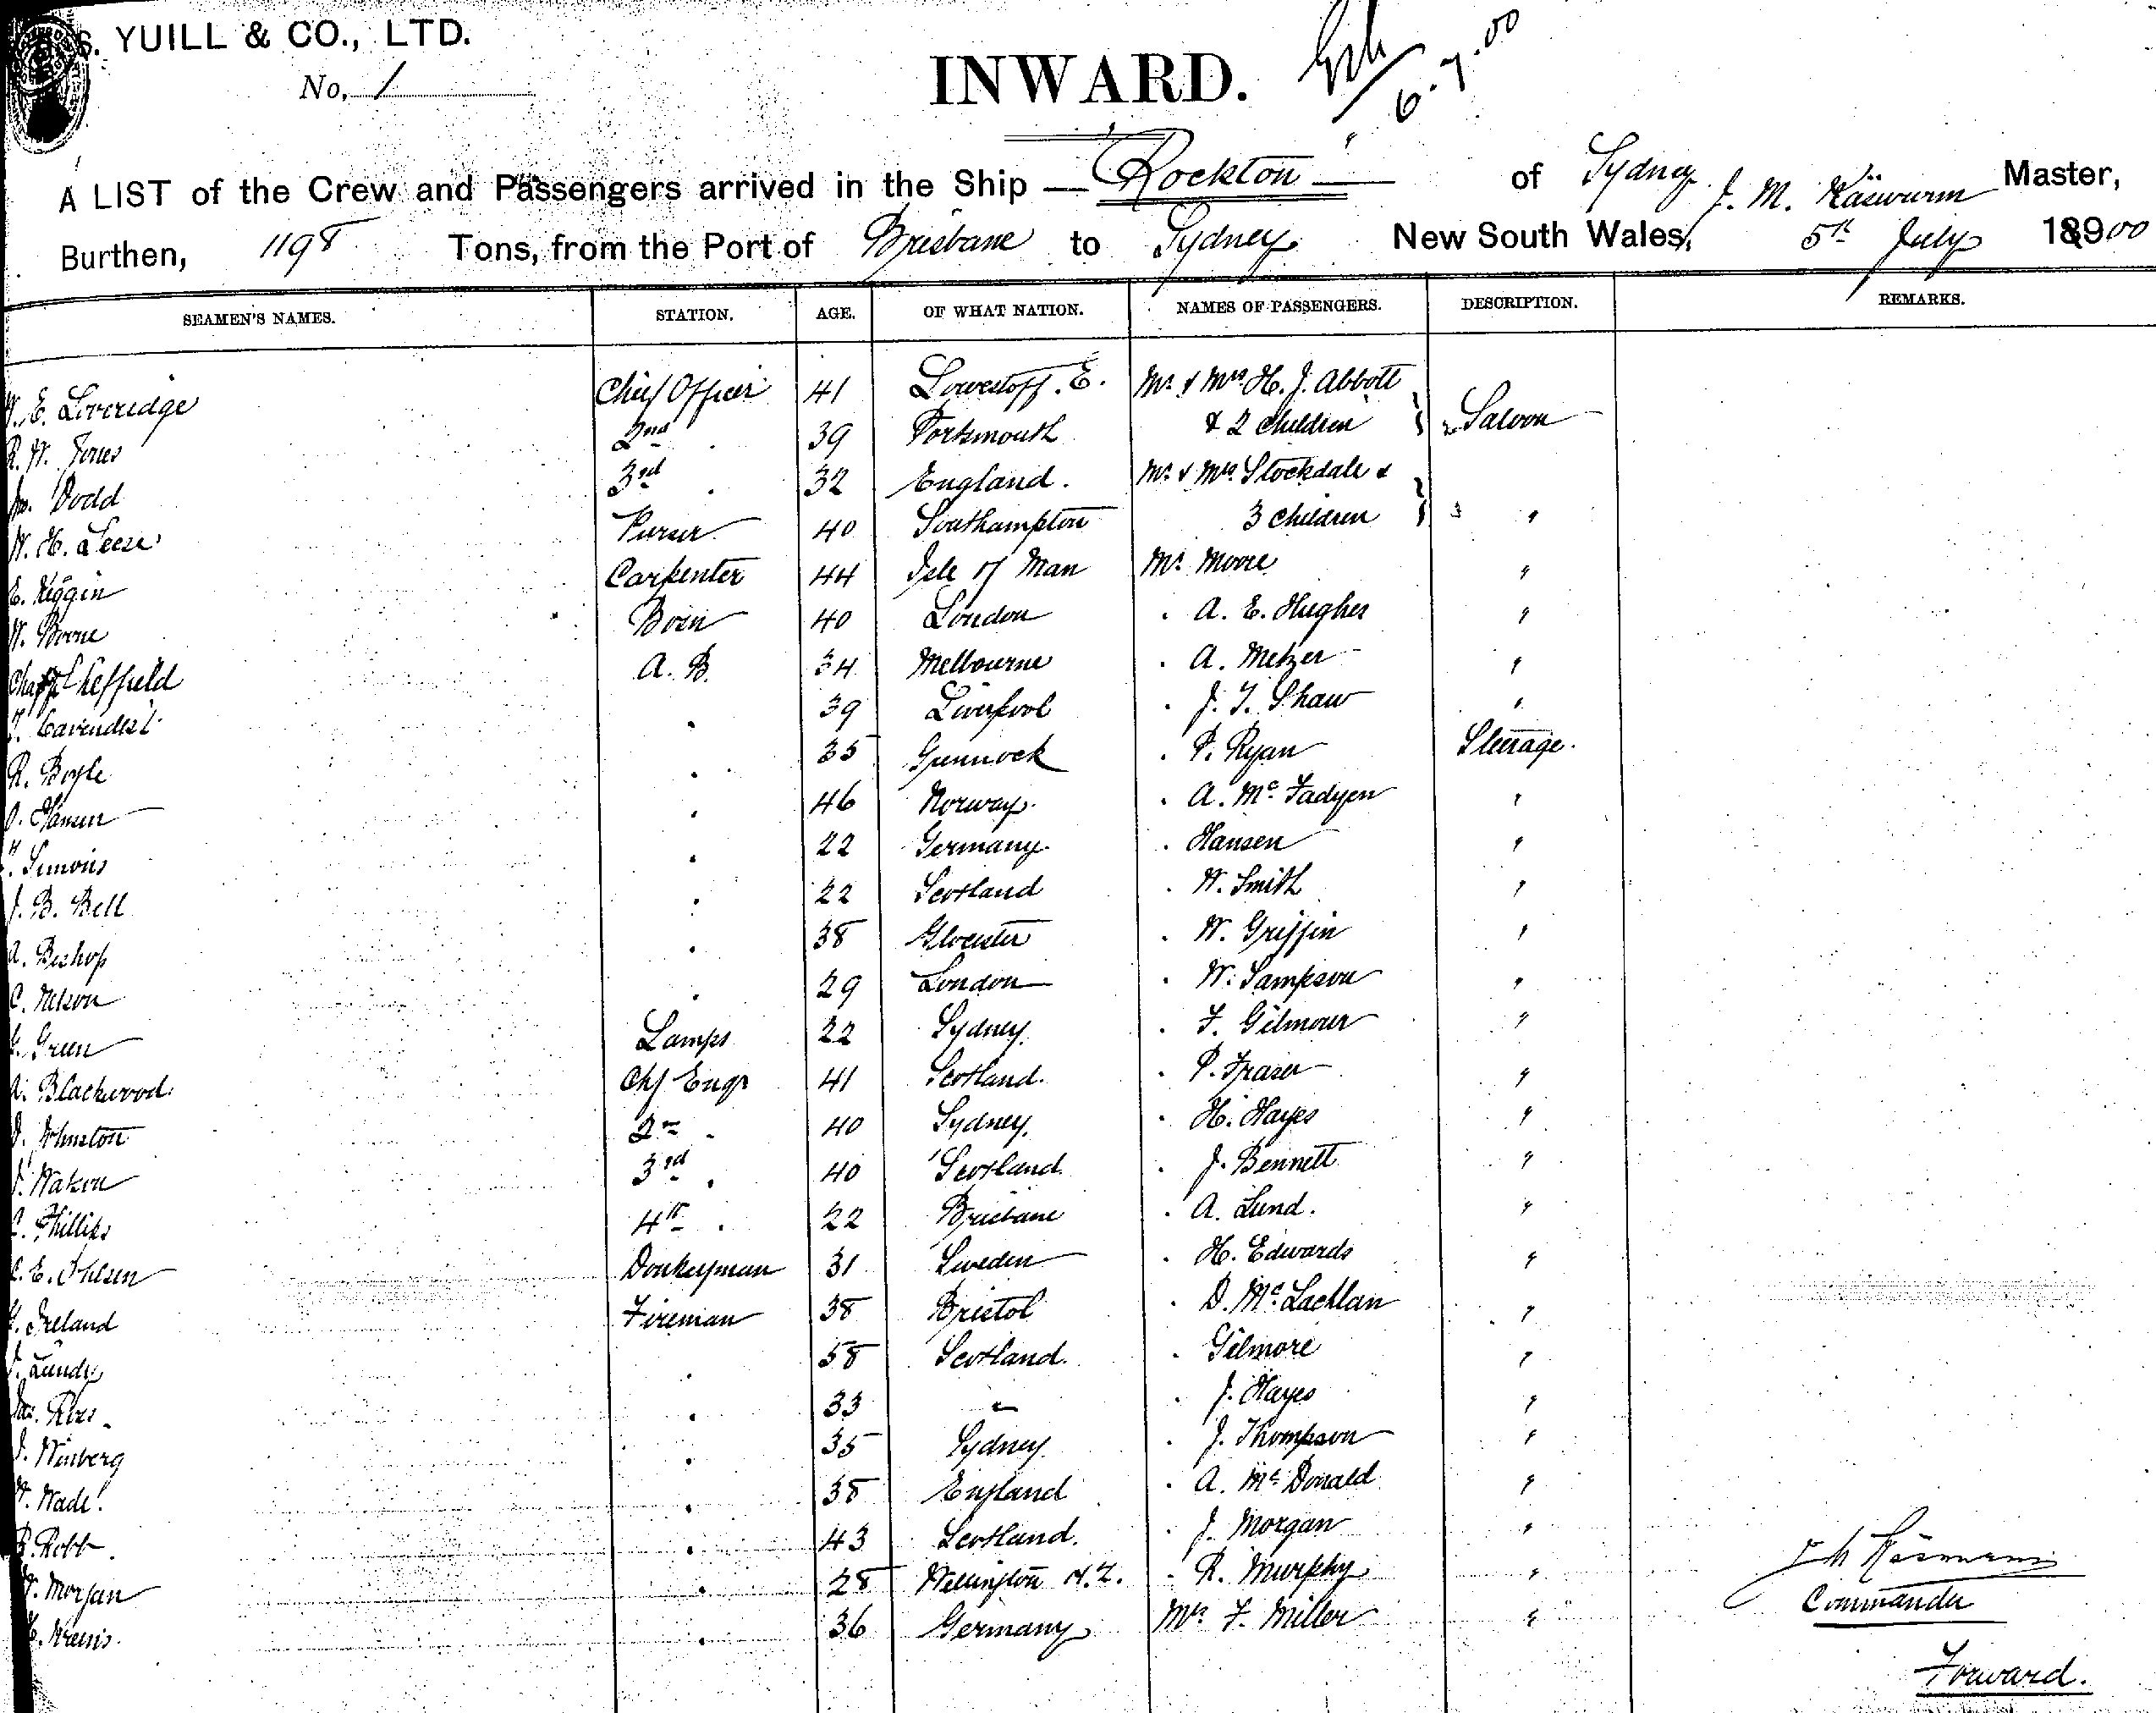 S. YUILL & CO., LTD.
No. 1
INWARD.
6.7.00
A LIST of the Crew and Passengers arrived in the Ship "Rockton" of Sydney J. M. Käswurm Master,
Burthen, 1198 Tons, from the Port of Brisbane to Sydney New South Wales, 5th July 18900
SEAMEN'S NAMES. STATION. AGE. OF WHAT NATION. NAMES OF PASSENGERS. DESCRIPTION. REMARKS.
E. Loveridge Chief Officer 41 Lowestoff. E. Mr & Mrs H. J. Abbott
R. W. Jones 2nd " 39 Portsmouth & 2 children } 2 Saloon
Dodd 3rd " 32 England. Mr & Mrs Stockdale &
W. H. Leese Purser 40 Southampton 3 children } 3 "
E. Kiggin Carpenter 44 Isle of Man Mr Moore "
W. Boone Bosn 40 London " A. E. Hughes "
Chas Sheffield A. B. 34 Melbourne " A. Metzer "
" 39 Liverpool " J. T. Shaw "
R. Boyle " 35 Greenock " P. Ryan Steerage.
O. Hansen " 46 Norway. " A. McFadyen "
Simons " 22 Germany. " Hansen "
J. B. Bell " 22 Scotland " W. Smith "
A. Bishop " 38 Glocester " W. Griffin "
C. Nelson " 29 London " W. Sampson "
Green Lamps 22 Sydney. " F. Gilmour "
A. Blackwood. Chf Engr 41 Scotland. " P. Fraser "
Johnston 2nd " 40 Sydney. " H. Hayes "
3rd " 40 Scotland. " J. Bennett "
C. Phillips 4th " 22 Brisbane " A. Lund. "
C. E. Ohlsen Donkeyman 31 Sweden " H. Edwards "
Ireland Fireman 38 Bristol " D. McLachlan "
Lundy " 58 Scotland. " Gilmore "
Ross " 33 " " J. Hayes "
Winberg " 35 Sydney. " J. Thompson "
Wade " 38 England " A. McDonald "
Robb " 43 Scotland. " J. Morgan "
Morgan " 28 Wellington N.Z. " R. Murphy "
" 36 Germany Mrs F. Miller "
J M Käswurm
Commander
Forward.